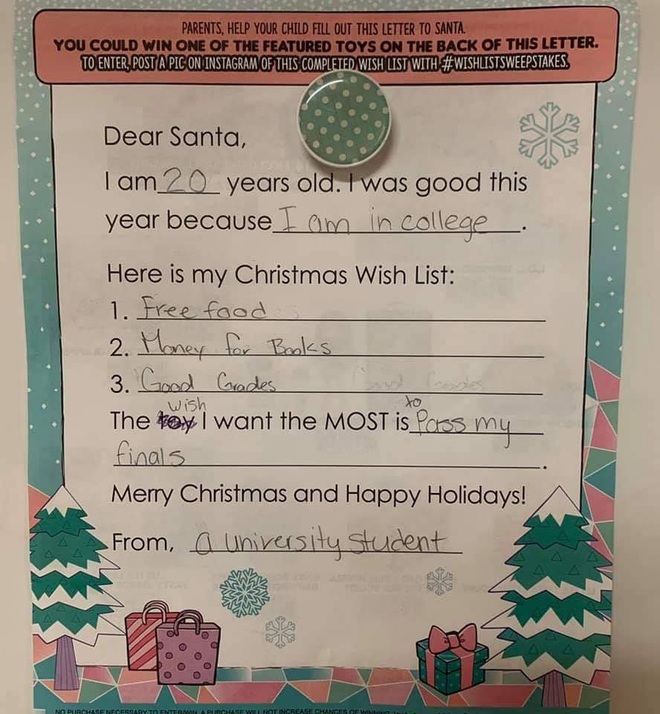 PARENTS, HELP YOUR CHILD FILL OUT THIS LETTER TO SANTA.
YOU COULD WIN ONE OF THE FEATURED TOYS ON THE BACK OF THIS LETTER.
TO ENTER, POST A PIC ON INSTAGRAM OF THIS COMPLETED WISH LIST WITH #WISHLISTSWEEPSTAKES.
Dear Santa,
I am 20 years old. I was good this
year because I am in college.
Here is my Christmas Wish List:
1. Free food
2. Money for Books
3. Good Grades
wish to
The toy I want the MOST is Pass my
finals.
Merry Christmas and Happy Holidays!
From, a university student
NO PURCHASE NECESSARY TO ENTER/WIN. A PURCHASE WILL NOT INCREASE CHANCES OF WINNING.